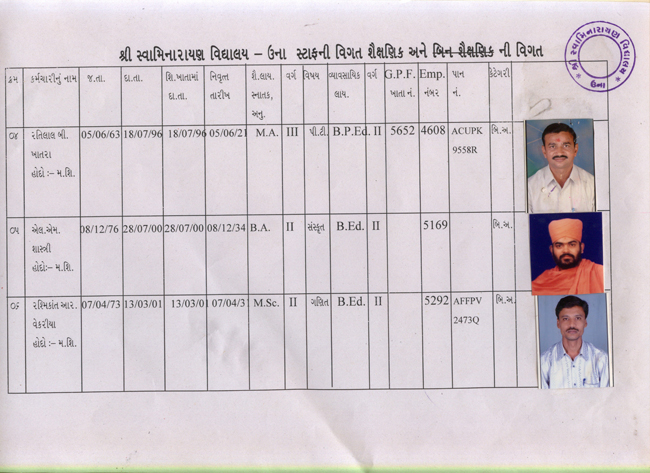 શ્રી સ્વામિનારાયણ વિદ્યાલય – ઉના સ્ટાફની વિગત શૈક્ષણિક અને બિન શૈક્ષણિક ની વિગત
શ્રી સ્વામિનારાયણ વિદ્યાલય
ઉના
ક્રમ કર્મચારીનું નામ જ.તા. દા.તા. શિ.ખાતામાં નિવૃત્ત શૈ.લાય. વર્ગ વિષય વ્યાવસાયિક વર્ગ G.P.F. Emp. પાન કેટેગરી
દા.તા. તારીખ સ્નાતક, લાય. ખાતા નં. નંબર નં.
અનુ.
૦૪ રતિલાલ બી. 05/06/63 18/07/96 18/07/96 05/06/21 M.A. III પી.ટી. B.P.Ed. II 5652 4608 ACUPK બિ.અ.
ખાતરા 9558R
હોદો :- મ.શિ.
૦૫ એલ.એમ. 08/12/76 28/07/00 28/07/00 08/12/34 B.A. II સંસ્કૃત B.Ed. II 5169 બિ.અ.
શાસ્ત્રી
હોદો:- મ.શિ.
૦૬ રશ્મિકાંત આર. 07/04/73 13/03/01 13/03/01 07/04/31 M.Sc. II ગણિત B.Ed. II 5292 AFFPV બિ.અ.
વેકરીયા 2473Q
હોદો :- મ.શિ.